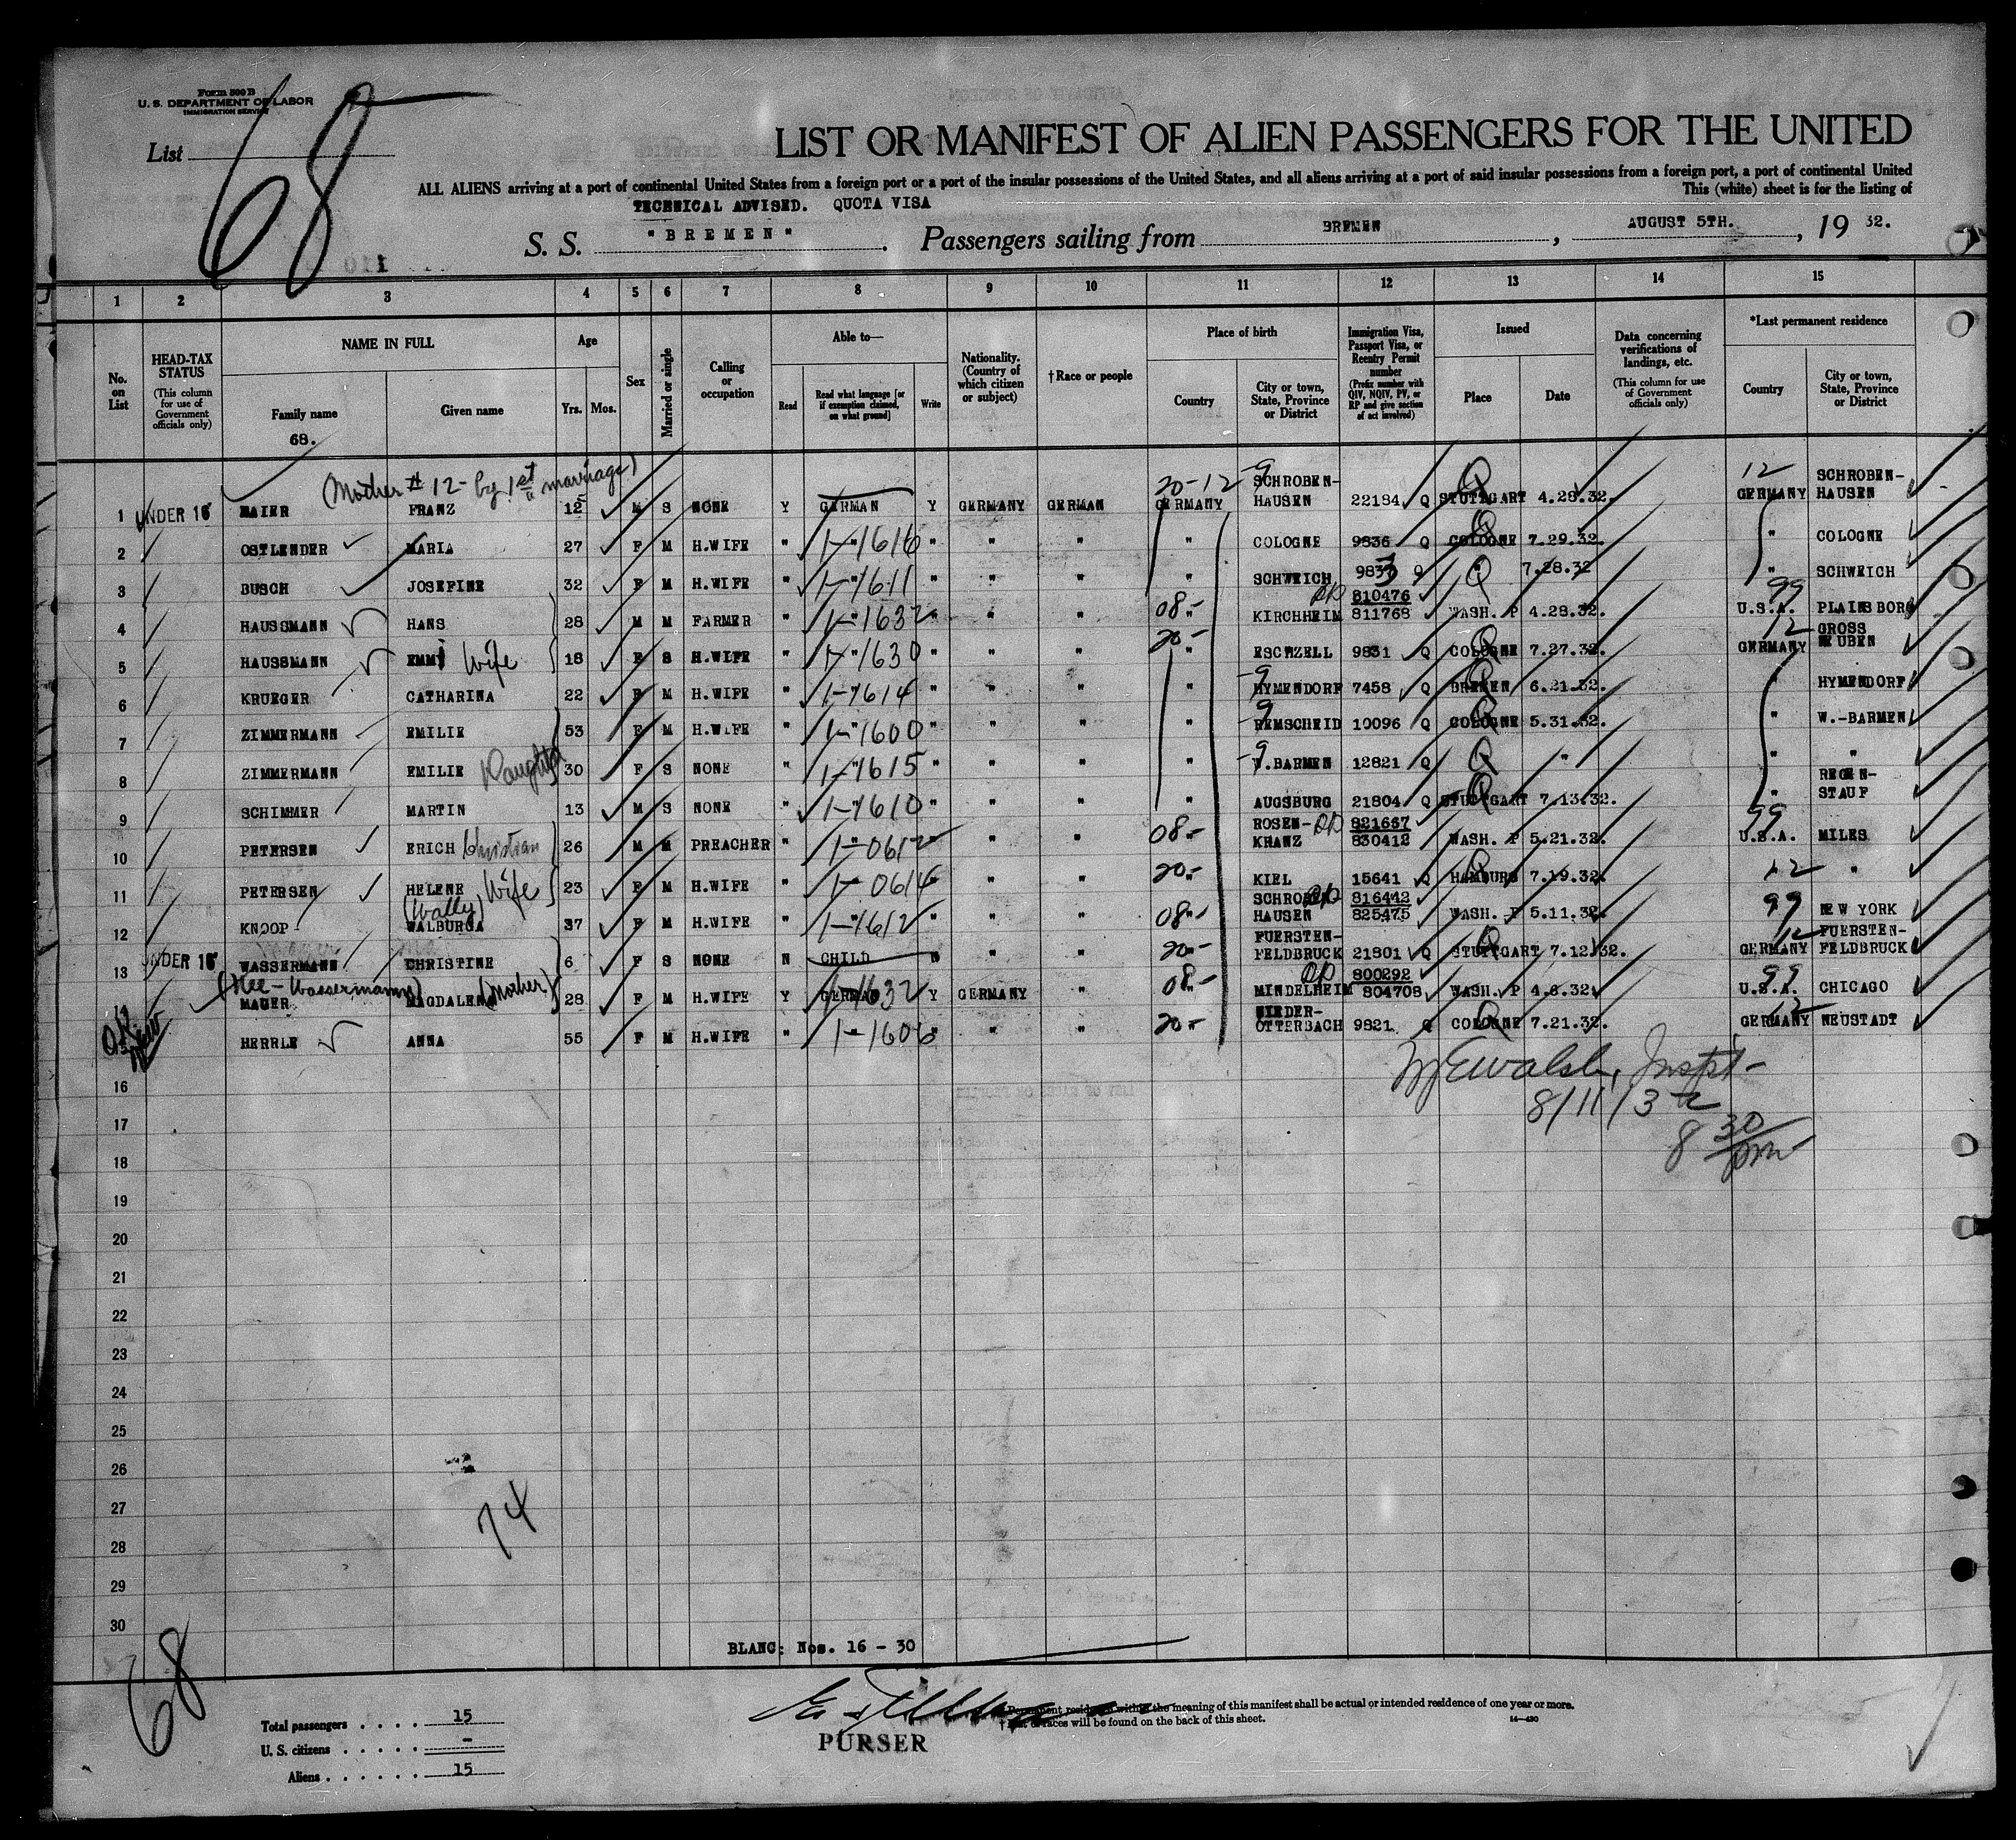 Form 500 B
U. S. DEPARTMENT OF LABOR
IMMIGRATION SERVICE
List 68
LIST OR MANIFEST OF ALIEN PASSENGERS FOR THE UNITED
ALL ALIENS arriving at a port of continental United States from a foreign port or a port of the insular possessions of the United States, and all aliens arriving at a port of said insular possessions from a foreign port, a port of continental United
This (white) sheet is for the listing of
TECHNICAL ADVISED. QUOTA VISA
S. S. "BREMEN". Passengers sailing from BREMEN, AUGUST 5TH., 19 32.
1 2 3 4 5 6 7 8 9 10 11 12 13 14 15
No. on List
HEAD-TAX STATUS (This column for use of Government officials only)
NAME IN FULL Family name Given name
68.
Age Yrs. Mos.
Sex
Married or single
Calling or occupation
Able to— Read Read what language [or if exemption claimed, on what ground] Write
Nationality. (Country of which citizen or subject)
†Race or people
Place of birth Country City or town, State, Province or District
Immigration Visa, Passport Visa, or Reentry Permit number (Prefix number with QIV, NQIV, PV, or RP and give section of act involved)
Issued Place Date
Data concerning verifications of landings, etc. (This column for use of Government officials only)
*Last permanent residence Country City or town, State, Province or District
(Mother # 12 - by 1st marriage)
1 UNDER 16 MAIER FRANZ 12 M S NONE Y GERMAN Y GERMANY GERMAN 20-12 GERMANY -9 SCHROBEN-HAUSEN 22184 Q Q STUTTGART 4.28.32. 12 GERMANY SCHROBEN-HAUSEN
2 OSTLENDER MARIA 27 F M H.WIFE " 1-1616 " " " " COLOGNE 9836 Q Q COLOGNE 7.29.32. " COLOGNE
3 BUSCH JOSEFINE 32 F M H.WIFE " 1-1611 " " " " SCHWEICH 983 3 Q Q " 7.28.32 " SCHWEICH
4 HAUSSMANN HANS 28 M M FARMER " 1-1632 " " " 08- " KIRCHHEIM 810476 811768 WASH. P 4.28.32. 99 U.S.A. PLAINSBORO
5 HAUSSMANN EMMI Wife 18 F S H.WIFE " 1-1630 " " " 20- " ESCHZELL 9831 Q Q COLOGNE 7.27.32. 12 GERMANY GROSS
6 KRUEGER CATHARINA 22 F M H.WIFE " 1-1614 " " " " -9 HYMENDORF 7458 Q Q BREMEN 6.21.32. " HYMENDORF
7 ZIMMERMANN EMILIE 53 F M H.WIFE " 1-1600 " " " " -9 REMSCHEID 10096 Q Q COLOGNE 5.31.32. " W.-BARMEN
8 ZIMMERMANN EMILIE Daughter 30 F S NONE " 1-1615 " " " " -9 W.BARMEN 12821 Q Q " " "
9 SCHIMMER MARTIN 13 M S NONE " 1-1610 " " " " AUGSBURG 21804 Q Q STUTTGART 7.13.32. " REGEN-STAUF
10 PETERSEN ERICH Christian 26 M M PREACHER " 1-0612 " " " 08- ROSEN-KRANZ 821667 830412 WASH. P 5.21.32. 99 U.S.A. MILES
11 PETERSEN HELENE Wife 23 F M H.WIFE " 1-0614 " " " 20- KIEL 15641 Q Q HAMBURG 7.19.32. 12 "
12 KNOOP (Wally) WALBURGA 37 F M H.WIFE " 1-1612 " " " 08- SCHROBENHAUSEN 816442 825475 WASH. P 5.11.32. 99 NEW YORK
13 UNDER 16 WASSERMANN CHRISTINE 6 F S NONE N CHILD N " " 20- FUERSTEN-FELDBRUCK 21801 Q Q STUTTGART 7.12.32. 12 GERMANY FUERSTEN-FELDBRUCK
(Nee - Wassermann)
MAGER MAGDALENA (Mother) 28 F M H.WIFE Y GERMAN 1-1632 Y GERMANY " 08- MINDELHEIM 800292 804708 WASH. P 4.6.32. 99 U.S.A. CHICAGO
HERRLE ANNA 55 F M H.WIFE " 1-1606 " " " 20- NIEDER-OTTERBACH 9821 Q Q COLOGNE 7.21.32. 12 GERMANY NEUSTADT
16
17
18
19
20
21
22
23
24
25
26
27
28
29
30
Walsh, Inspt-
8/11/32
8 30 pm
74
BLANC: Nos. 16 - 30
68
PURSER
Total passengers . . . . 15
U. S. citizens . . . . . -
Aliens . . . . . . 15
*Permanent residence within the meaning of this manifest shall be actual or intended residence of one year or more.
†List of races will be found on the back of this sheet.
14—430